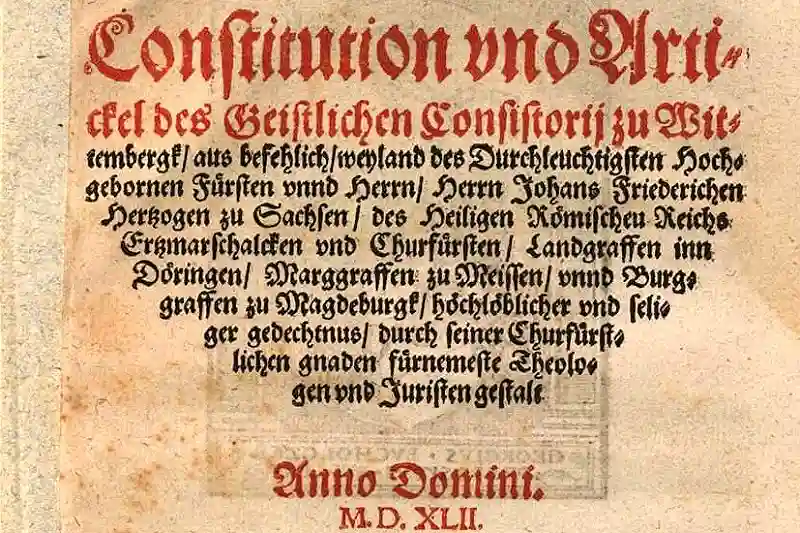 Constitution vnd Arti⸗
ckel des Geistlichen Consistorij zu Wit⸗
tembergk/ aus befehlich/weyland des Durchleuchtigsten Hoch⸗
gebornen Fürsten vnnd Herrn/ Herrn Johans Friederichen
Hertzogen zu Sachsen/ des Heiligen Römischen Reichs
Ertzmarschalcken vnd Churfürsten/ Landgraffen inn
Döringen/ Marggraffen zu Meissen/ vnnd Burg⸗
graffen zu Magdeburgk/ höchlöblicher vnd seli⸗
ger gedechtnus/ durch seiner Churfürst⸗
lichen gnaden fürnemeste Theolo⸗
gen vnd Juristen gestalt
Anno Domini.
M. D. XLII.